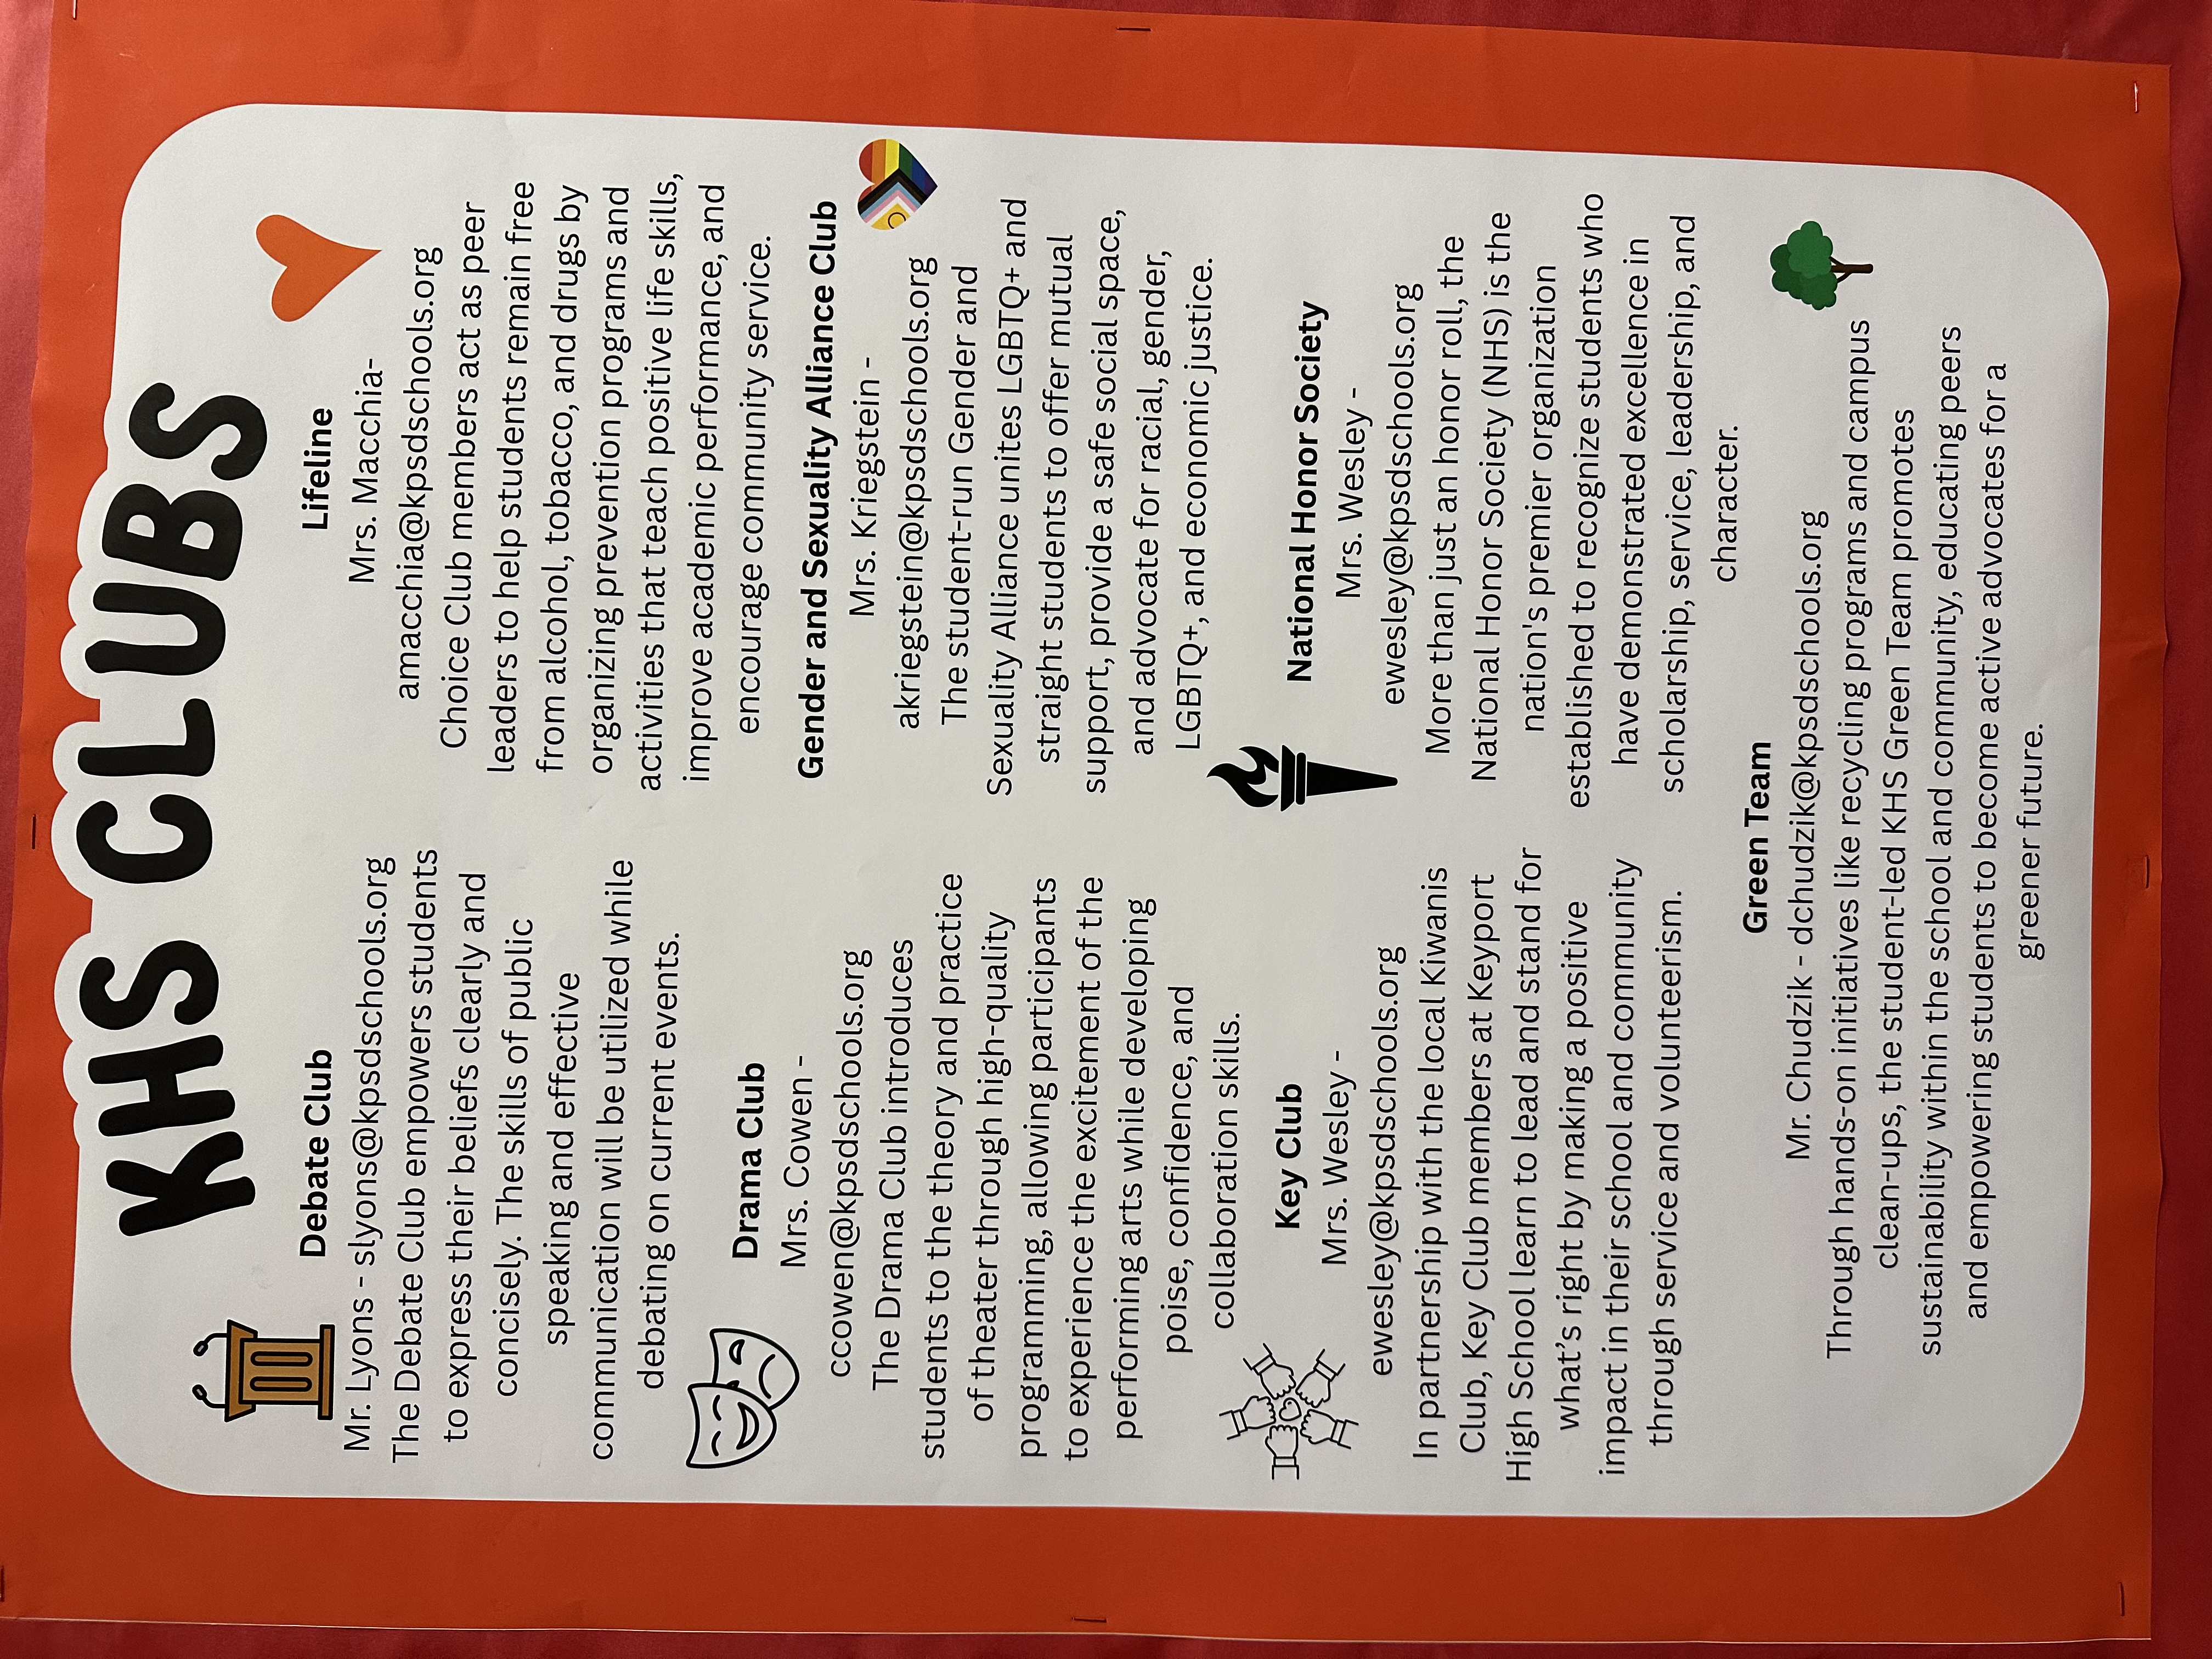 KHS CLUBS
Debate Club
Mr. Lyons - slyons@kpsdschools.org
The Debate Club empowers students
to express their beliefs clearly and
concisely. The skills of public
speaking and effective
communication will be utilized while
debating on current events.
Drama Club
Mrs. Cowen -
ccowen@kpsdschools.org
The Drama Club introduces
students to the theory and practice
of theater through high-quality
programming, allowing participants
to experience the excitement of the
performing arts while developing
poise, confidence, and
collaboration skills.
Key Club
Mrs. Wesley -
ewesley@kpsdschools.org
In partnership with the local Kiwanis
Club, Key Club members at Keyport
High School learn to lead and stand for
what's right by making a positive
impact in their school and community
through service and volunteerism.
Lifeline
Mrs. Macchia-
amacchia@kpsdschools.org
Choice Club members act as peer
leaders to help students remain free
from alcohol, tobacco, and drugs by
organizing prevention programs and
activities that teach positive life skills,
improve academic performance, and
encourage community service.
Gender and Sexuality Alliance Club
Mrs. Kriegstein -
akriegstein@kpsdschools.org
The student-run Gender and
Sexuality Alliance unites LGBTQ+ and
straight students to offer mutual
support, provide a safe social space,
and advocate for racial, gender,
LGBTQ+, and economic justice.
National Honor Society
Mrs. Wesley -
ewesley@kpsdschools.org
More than just an honor roll, the
National Honor Society (NHS) is the
nation's premier organization
established to recognize students who
have demonstrated excellence in
scholarship, service, leadership, and
character.
Green Team
Mr. Chudzik - dchudzik@kpsdschools.org
Through hands-on initiatives like recycling programs and campus
clean-ups, the student-led KHS Green Team promotes
sustainability within the school and community, educating peers
and empowering students to become active advocates for a
greener future.